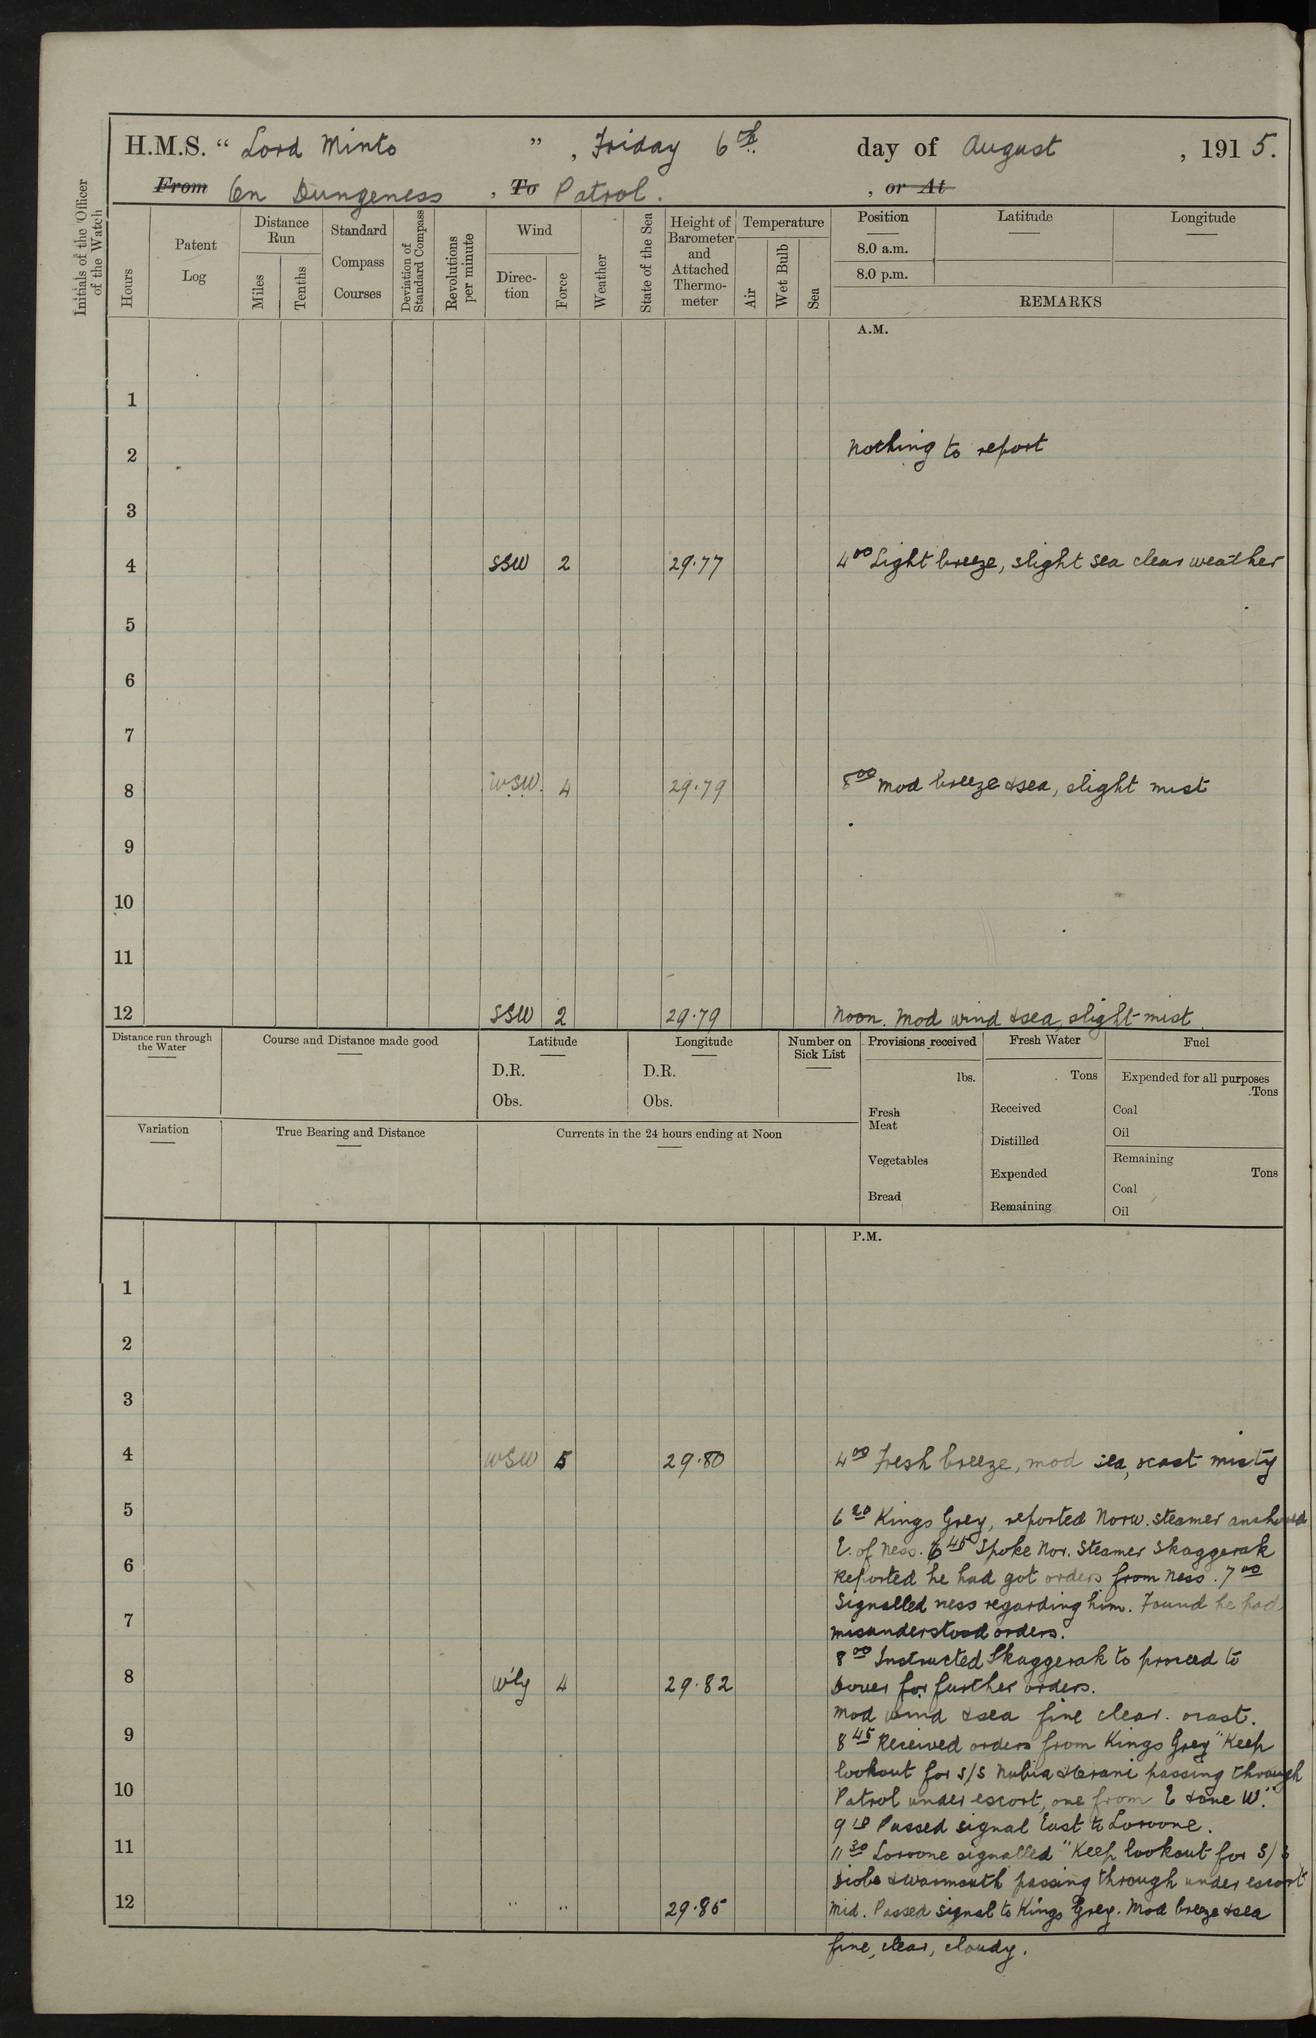 H.M.S. " Lord Minto " , Friday 6th day of August , 1915.
From On Dungeness , To Patrol. , or At
Initials of the Officer of the Watch
Hours
Patent Log
Distance Run
Miles
Tenths
Standard Compass Courses
Deviation of Standard Compass
Revolutions per minute
Wind
Direc-tion
Force
Weather
State of the Sea
Height of Barometer and Attached Thermo-meter
Temperature
Air
Wet Bulb
Sea
Position Latitude Longitude
8.0 a.m.
8.0 p.m.
REMARKS
A.M.
1
2 Nothing to report
3
4 SSW 2 29.77 4 00 Light breeze, slight sea clear weather
5
6
7
8 WSW. 4 29.79 8 00 Mod breeze & sea, slight mist
9
10
11
12 SSW 2 29.79 Noon. Mod wind & sea, slight mist.
Distance run through the Water
Course and Distance made good
Latitude
D.R.
Obs.
Longitude
D.R.
Obs.
Number on Sick List
Provisions received
lbs.
Fresh Meat
Vegetables
Bread
Fresh Water
Tons
Received
Distilled
Expended
Remaining
Fuel
Expended for all purposes
Tons
Coal
Oil
Remaining
Tons
Coal
Oil
Variation
True Bearing and Distance
Currents in the 24 hours ending at Noon
P.M.
1
2
3
4 WSW 5 29.80 4 00 Fresh breeze, mod sea, ocast misty
5 6 20 Kings Grey, reported Norw. steamer anchored
E. of Ness. 6 45 Spoke Nor. Steamer Skaggerak
6 Reported he had got orders from Ness. 7 00
Signalled ness regarding him. Found he had
7 misunderstood orders.
8 00 Instructed Skaggerak to proceed to
8 W'ly 4 29.82 Dover for further orders.
Mod wind & sea fine clear. ocast.
9 8 45 Received orders from Kings Grey "Keep
lookout for S/S Nubia & passing through
10 Patrol under escort, one from E & one W."
9 Passed signal East to Lorone.
11 11 30 Lorone signalled "Keep lookout for S/S
& Warmouth passing through under escort
12 " " 29.85 Mid. Passed signal to Kings Grey. Mod breeze & sea
fine, clear, cloudy.